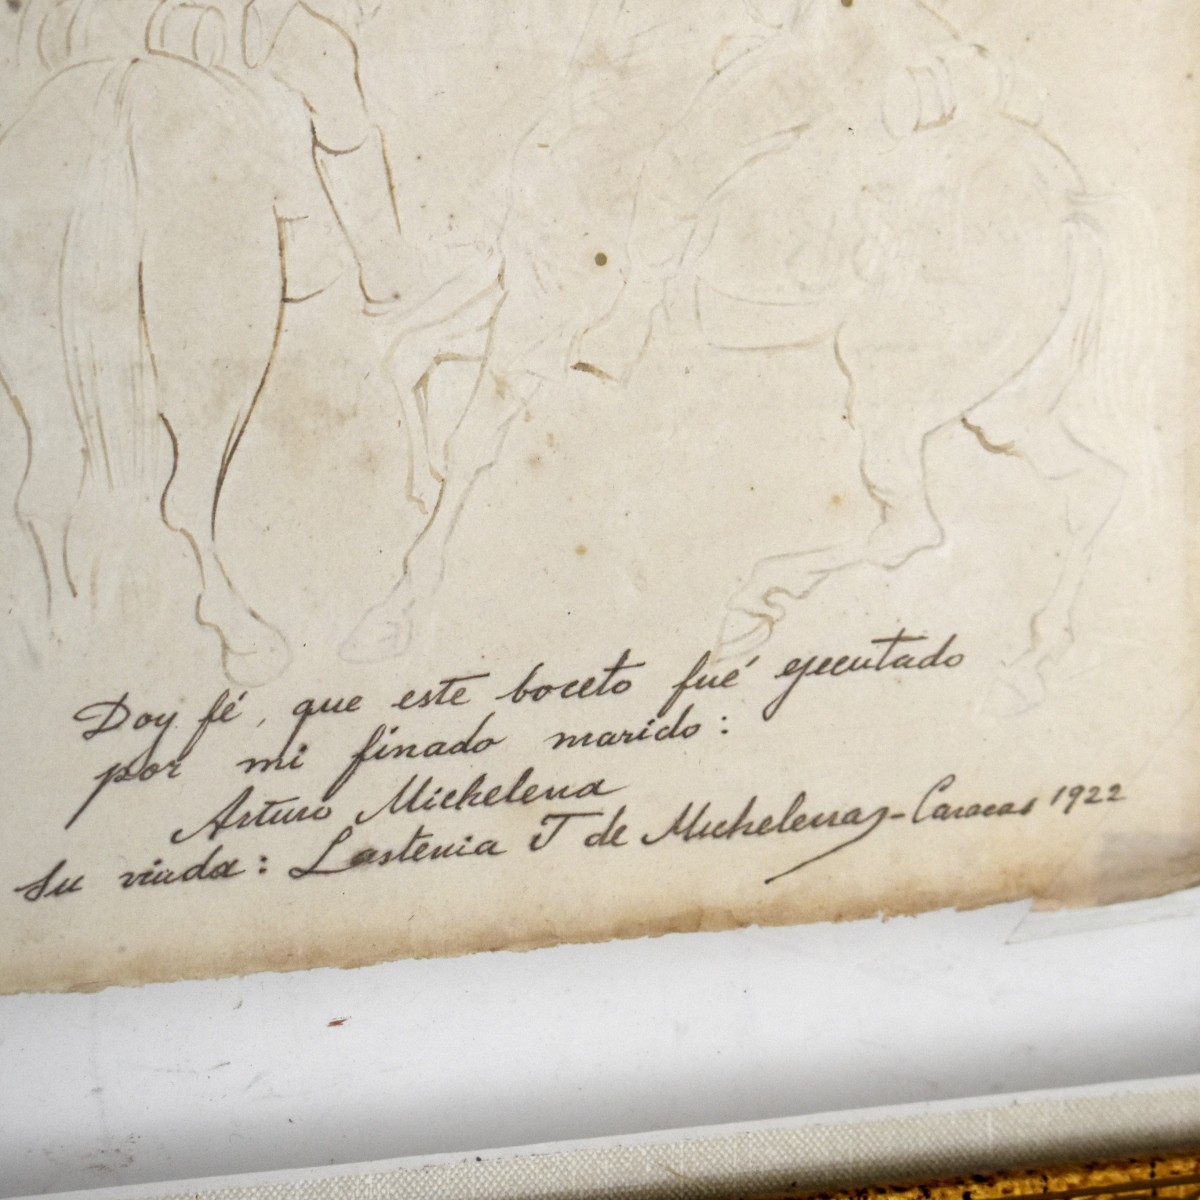 Doy fé, que este boceto fué ejecutado
por mi finado marido:
Arturo Michelena
Su viuda: Lastenia T de Michelena - Caracas 1922